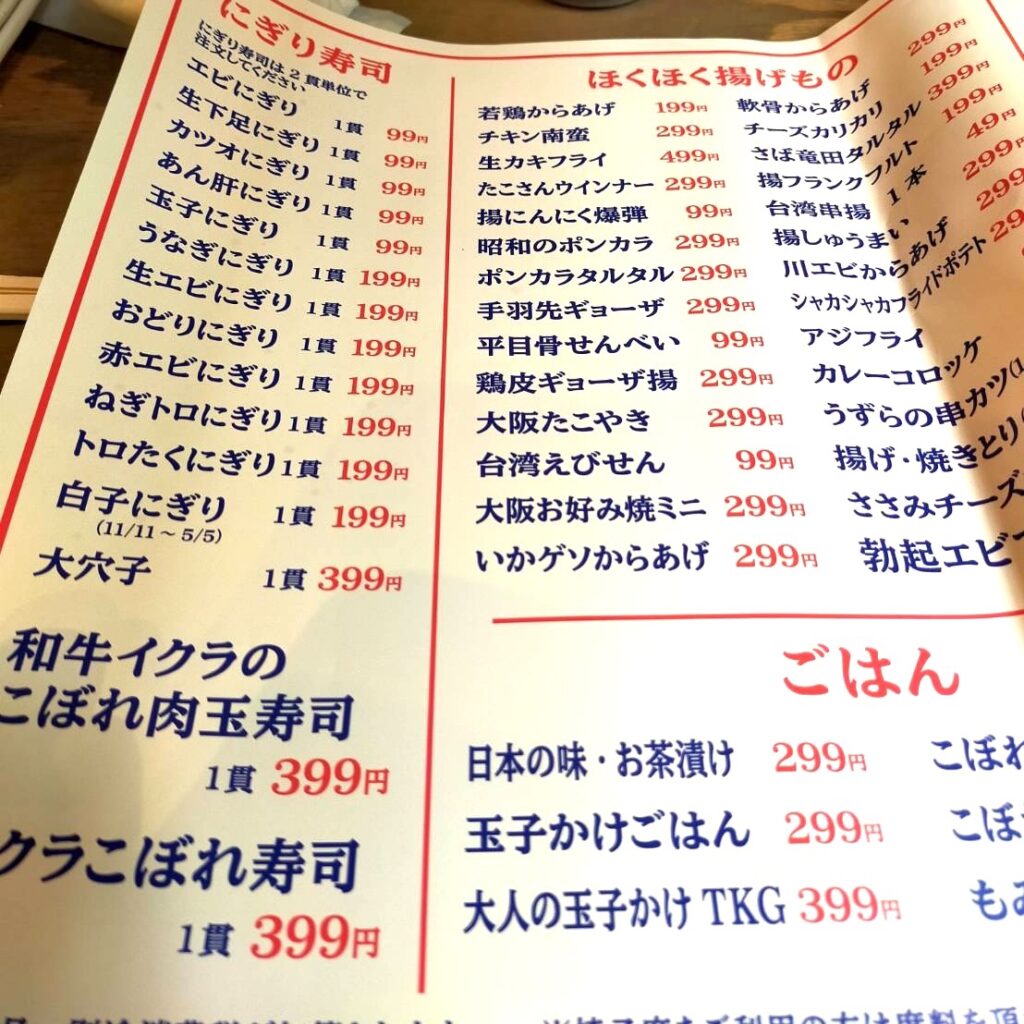 にぎり寿司
にぎり寿司は2貫単位で
注文してください
エビにぎり 1貫 99円
生下足にぎり 1貫 99円
カツオにぎり 1貫 99円
あん肝にぎり 1貫 99円
玉子にぎり 1貫 99円
うなぎにぎり 1貫 199円
生エビにぎり 1貫 199円
おどりにぎり 1貫 199円
赤エビにぎり 1貫 199円
ねぎトロにぎり 1貫 199円
トロたくにぎり 1貫 199円
白子にぎり 1貫 199円
(11/11～5/5)
大穴子 1貫 399円
和牛イクラの
こぼれ肉玉寿司
1貫 399円
クラこぼれ寿司
1貫 399円
ほくほく揚げもの
若鶏からあげ 199円
チキン南蛮 299円
生カキフライ 499円
たこさんウインナー 299円
揚にんにく爆弾 99円
昭和のポンカラ 299円
ポンカラタルタル 299円
手羽先ギョーザ 299円
平目骨せんべい 99円
鶏皮ギョーザ揚 299円
大阪たこやき 299円
台湾えびせん 99円
大阪お好み焼ミニ 299円
いかゲソからあげ 299円
軟骨からあげ 299円
チーズカリカリ 199円
さば竜田タルタル 399円
揚フランクフルト 199円
台湾串揚 1本 49円
揚しゅうまい 299円
川エビからあげ 299円
シャカシャカフライドポテト 29
アジフライ
カレーコロッケ
うずらの串カツ(1
揚げ・焼きとり(
ささみチーズ
勃起エビ
ごはん
日本の味・お茶漬け 299円
玉子かけごはん 299円
大人の玉子かけ TKG 399円
こぼれ
こぼ
もみ